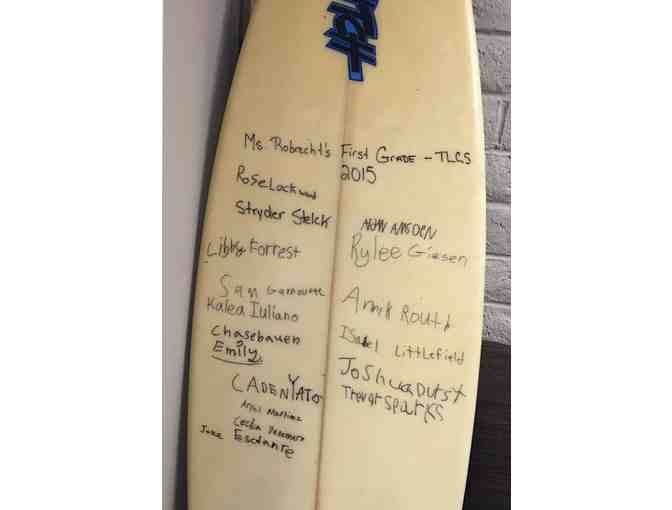 Ms. Robracht's First Grade - TLCS
2015
Rose Lockwood
Stryder Stelck
Libby Forrest
Sam
Kalea Iuliano
Chasebauen
Emily
CADEN YATO
Martinez
Jake Escalante
Rylee Giesen
Annik Routh
Isabel Littlefield
Joshua Durst
Trevor Sparks